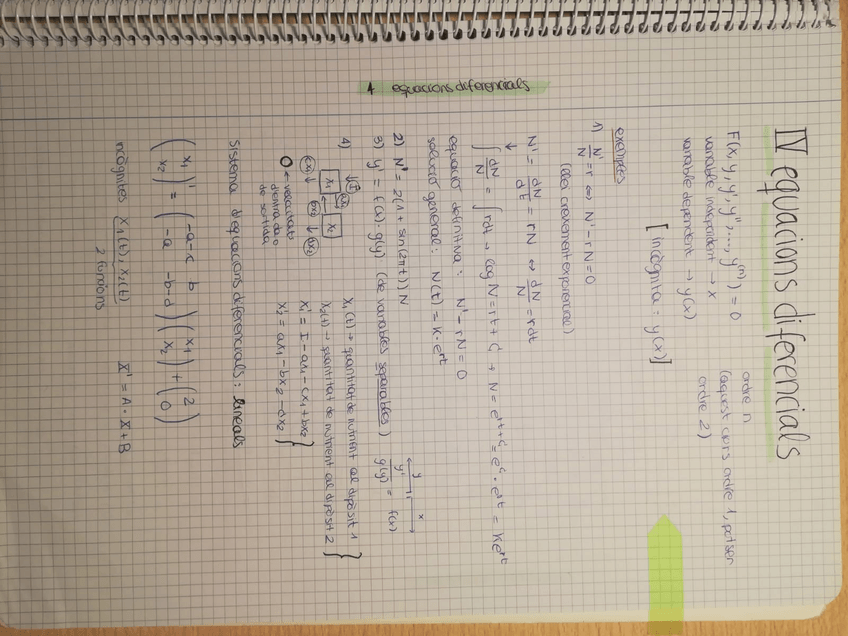 IV equacions diferencials
1 equacions diferencials
F(x, y, y', y'', ..., y⁽ⁿ⁾) = 0
ordre n
variable independent → x
(aquest curs ordre 1, potser
variable dependent → y(x)
ordre 2)
[incògnita : y(x)]
exemples
1) N'/N = r ⇔ N' - rN = 0
(creixement exponencial)
N' = dN/dt = rN ⇔ dN/N = rdt
↓
∫ dN/N = ∫ rdt → log N = rt + C → N = e^(rt+C) = e^C · e^(rt) = Ke^(rt)
equació definitiva : N' - rN = 0
solució general : N(t) = K·e^(rt)
2) N' = 2(1 + sin(2πt)) N
3) y' = f(x)·g(y) (de variables separables) y'/g(y) = f(x)
y x
4) x₁(t) → quantitat de nutrient al dipòsit 1
x₂(t) → quantitat de nutrient al dipòsit 2 }
I
x₁ x₂
cx₁ bx₂ dx₂
O ← velocitats
d'entrada o
de sortida
x₁' = I - ax₁ - cx₁ + bx₂
x₂' = ax₁ - bx₂ - dx₂ }
Sistema d'equacions diferencials : lineals
(x₁ x₂)' = (-a-c b -a -b-d)(x₁ x₂) + (2 0)
incògnites x₁(t), x₂(t)
2 funcions
X' = A · X + B